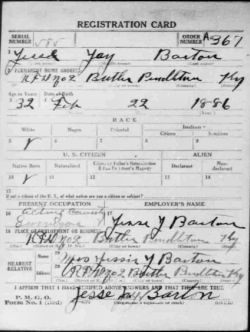 REGISTRATION CARD
SERIAL NUMBER
ORDER NUMBER A367
Jesse Jay Barton
2 PERMANENT HOME ADDRESS
RFD No 2 Butler Pendleton Ky
Age in Years
Date of Birth
32 Feb 22 1886
RACE
White
Negro
Oriental
Indian
Citizen
Noncitizen
U. S. CITIZEN
ALIEN
Native Born
Naturalized
Declarant
Non-declarant
10
If not a citizen of the U. S., of what nation are you a citizen or subject?
PRESENT OCCUPATION
EMPLOYER'S NAME
Jesse J Barton
PLACE OF EMPLOYMENT OR BUSINESS
RFD No 2 Butler Pendleton Ky
NEAREST RELATIVE
Name
Mrs Jessie J Barton
Address
RFD No 2 Butler Pendleton Ky
I AFFIRM THAT I HAVE VERIFIED ABOVE ANSWERS AND THAT THEY ARE TRUE
P. M. G. O.
Form No. 1 (Red)
Jesse Barton